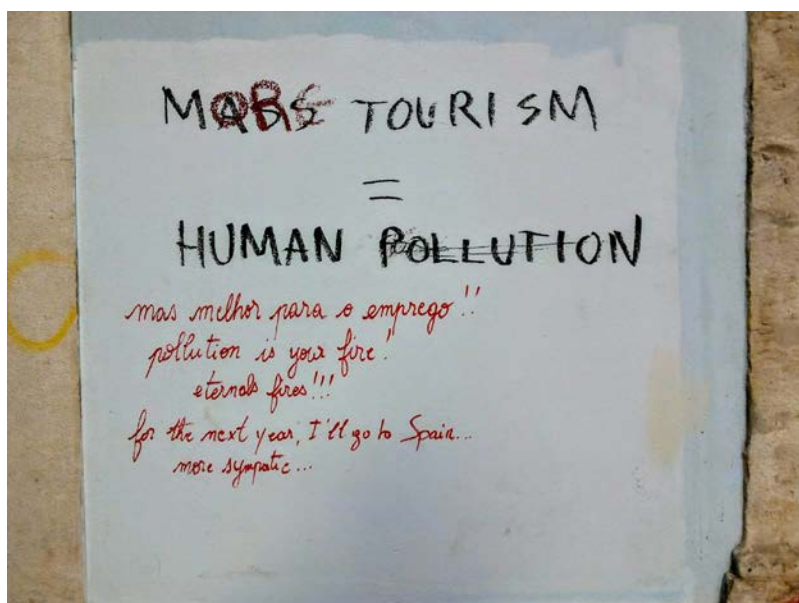 MORE TOURISM
=
HUMAN POLLUTION
mas melhor para o emprego!!
pollution is your fire!
eternals fires!!!
for the next year, I'll go to Spain...
more sympatic...